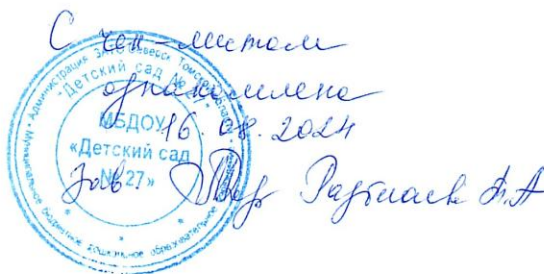 С чек-листом
ознакомлена
16.08.2024
Зав.
Администрация ЗАТО Северск Томской области
"Детский сад № 27"
МБДОУ
«Детский сад
№ 27»
Муниципальное бюджетное дошкольное образовательное